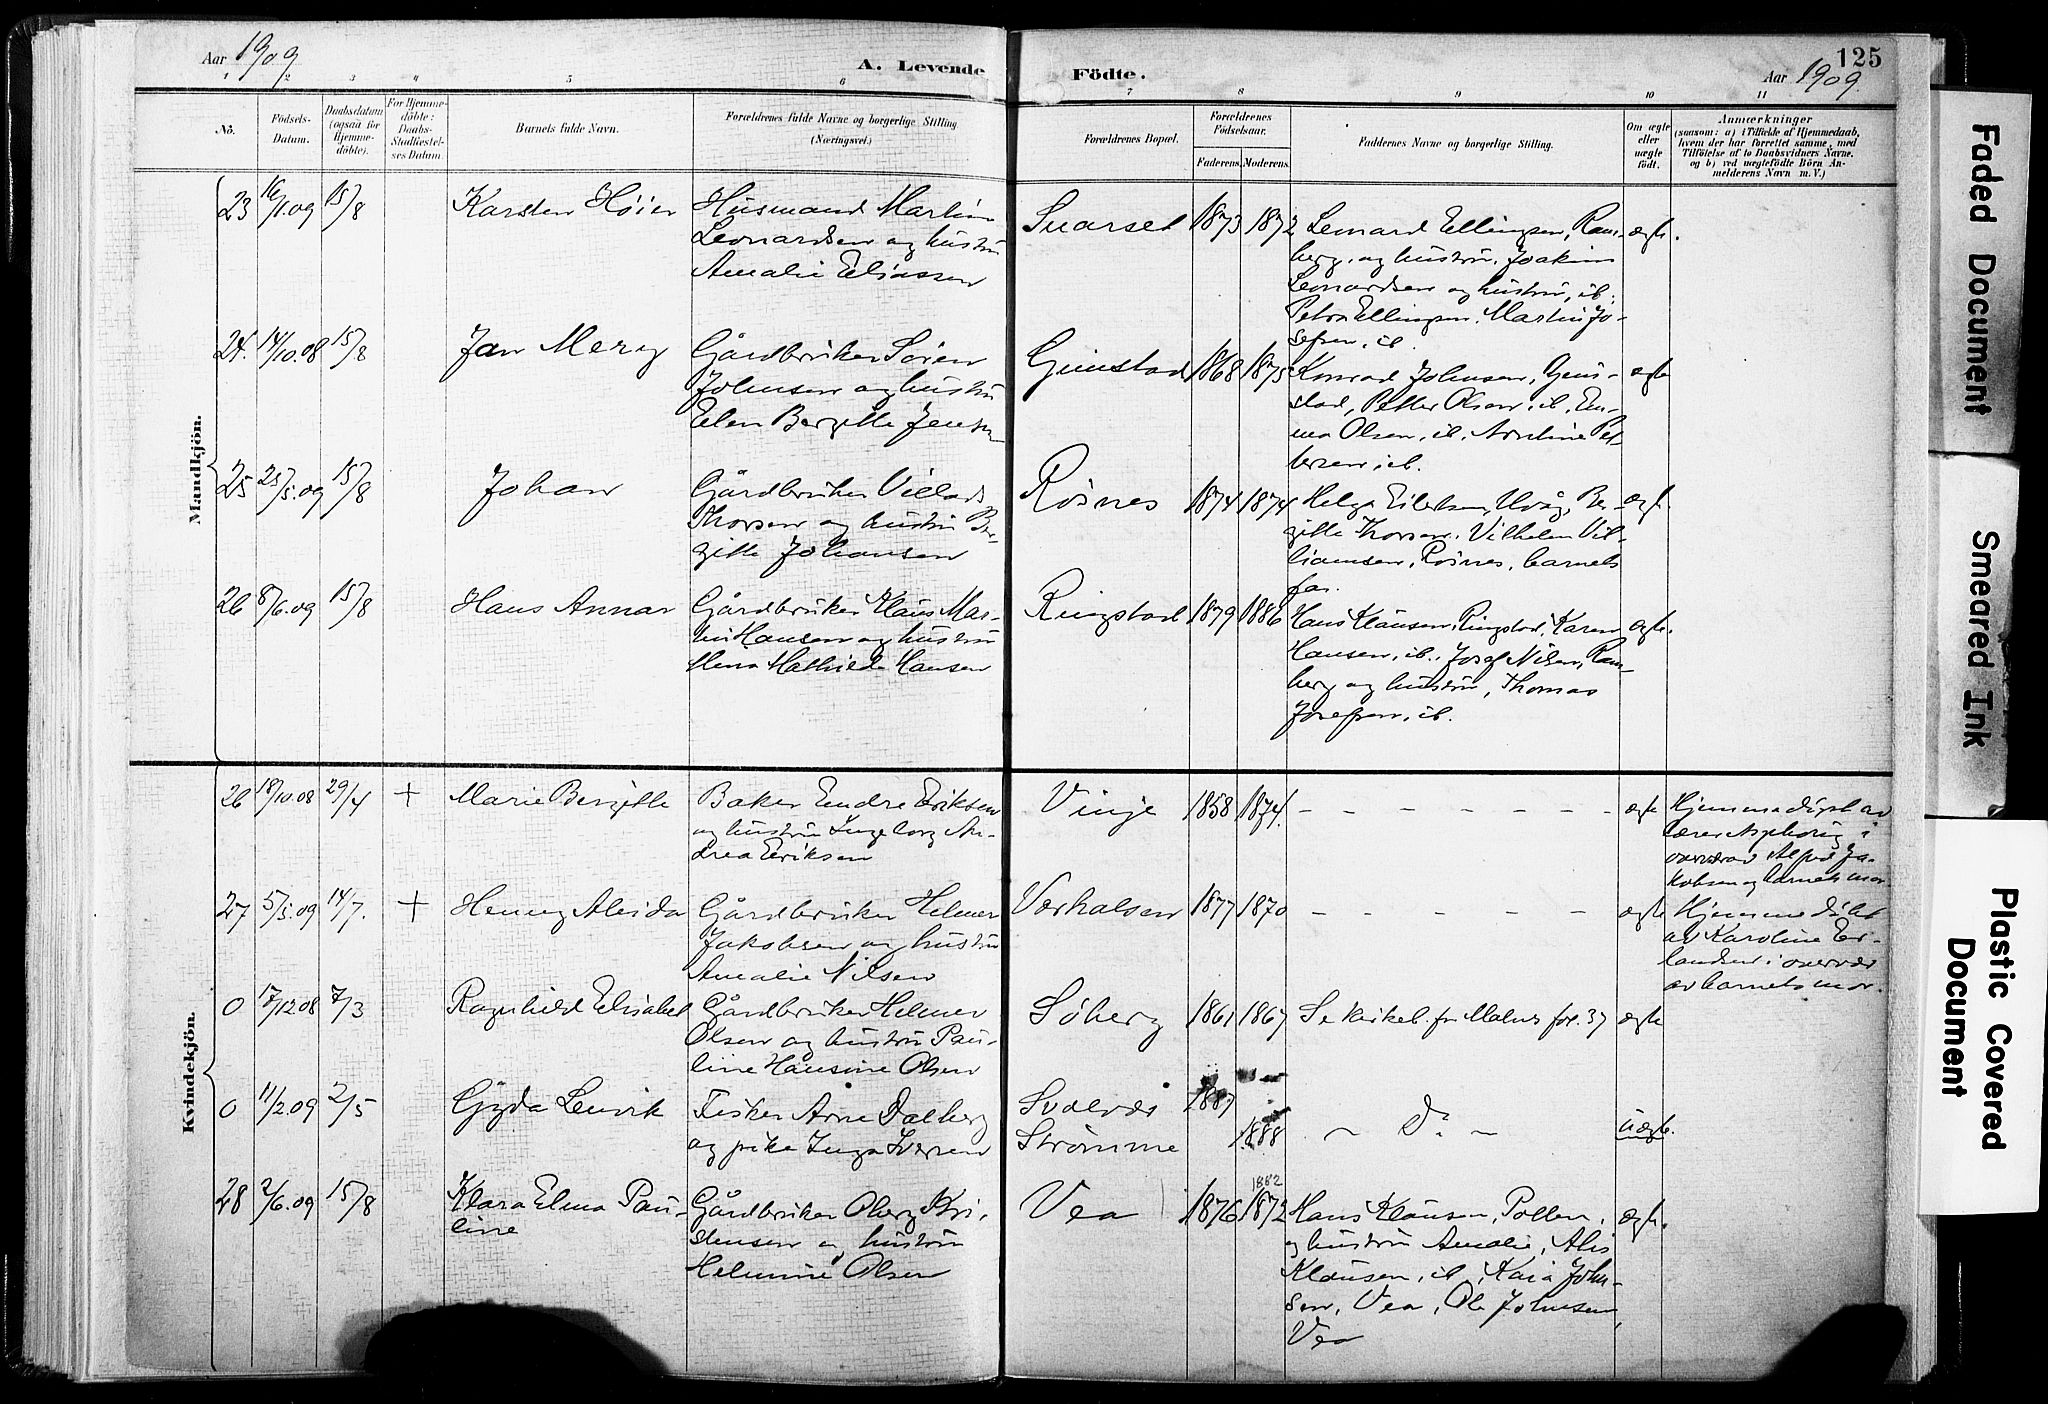 Aar 1909
A. Levende
Födte.
Aar 1909.
125
1 2 3 4 5 6 7 8 9 10 11
No.
Födsels-
Datum.
Daabsdatum
(ogsaa for
Hjemme-
döbte).
For Hjemme-
döbte:
Daabs-
Stadfæstel-
ses Datum.
Barnets fulde Navn.
Forældrenes fulde Navne og borgerlige Stilling
(Næringsvei.)
Forældrenes Bopæl.
Forældrenes
Födselsaar.
Faderens. Moderens.
Faddernes Navne og borgerlige Stilling.
Om ægte
eller
uægte
födt.
Anmærkninger
(saasom: a) i Tilfælde af Hjemmedaab,
hvem der har forrettet samme, med
Tilföielse af to Daabsvidners Navne,
og b) ved uægtefödte Börn An-
melderens Navn m. V.)
Mandkjön.
23 16/1.09 15/8 Karsten Höier
Husmand Martin
Leonardsen og hustru
Amalie Eliassen
Svarset 1873 1872
Leonard Ellingsen, Ram-
berg, og hustru, Joakim
Leonardsen og hustru, ib.
Petra Ellingsen, Martin Jo-
sefsen, ib.
ægte.
24. 14/10.08 15/8 Jan Merey
Gårdbruker Sören
Johnsen og hustru
Elen Bergitte Jensen
Grimstad 1868 1875
Konrad Johnsen, Grim-
stad, Petter Olsen, ib, Em-
ma Olsen, ib, Arntine Pet-
tersen, ib.
ægte
25 25/5.09 15/8 Johan
Gårdbruker Villads
Thorsen og hustru Ber-
gitte Johansen
Rösnes 1874 1874
Helga Eilertsen, Uvåg, Ber-
gitte Thorsen, Vilhelm Vil-
liamsen, Rösnes, barnets
far.
ægt.
26 8/6.09 15/8 Hans Annar
Gårdbruker Klaus Mar-
tin Hansen og hustru
Mathilde Hansen
Ringstad 1879 1886
Hans Klausen, Ringstad, Karen
Hansen, ib., Josef Nilsen, Ram-
berg og hustru, Thomas
Josefsen, ib.
ægte.
Kvindekjön.
26 18/10.08 29/4 + Marie Bergitte
Baker Endre Eriksen
og hustru Ingeborg An-
drea Eriksen
Vinje 1858 1874.
– – – – – –
ægte
Hjemmedöpt av
lærer i
overvær av Alfred Ja-
kobsen og barnets mor.
27 5/5.09 14/7. + Henny Alvida
Gårdbruker Helmer
Jakobsen og hustru
Amalie Nilsen
Vorhalsen 1877 1870
– – – – – –
ægte
Hjemmedöbt
av Karoline Er-
landsen i overvær
av barnets mor.
0 17/12 08 7/3 Ragnhild Elisabet
Gårdbruker Helmer
Olsen og hustru Pau-
line Hansine Olsen
Söberg 1861 1867
Se kirkeb. for Malnes fol. 37
ægte
0 11/2.09 2/5 Gyda Lenvik
Fisker Arne Dalberg
og pike Inga Iversen
Svolvær 1887
Strömme 1888
– Do –
uægte.
28 2/6.09 15/8 Klara Elma Pau-
line
Gårdbruker Oberg Kri-
stensen og hustru
Helmine Olsen
Vea 1876 1872
1882
Hans Klausen, Pollen,
og hustru Amalie, Alis
Klausen, ib, Kaia John-
sen, Vea, Ole Johnsen,
Vea
ægte.
Faded Document
Smeared Ink
Plastic Covered
Document